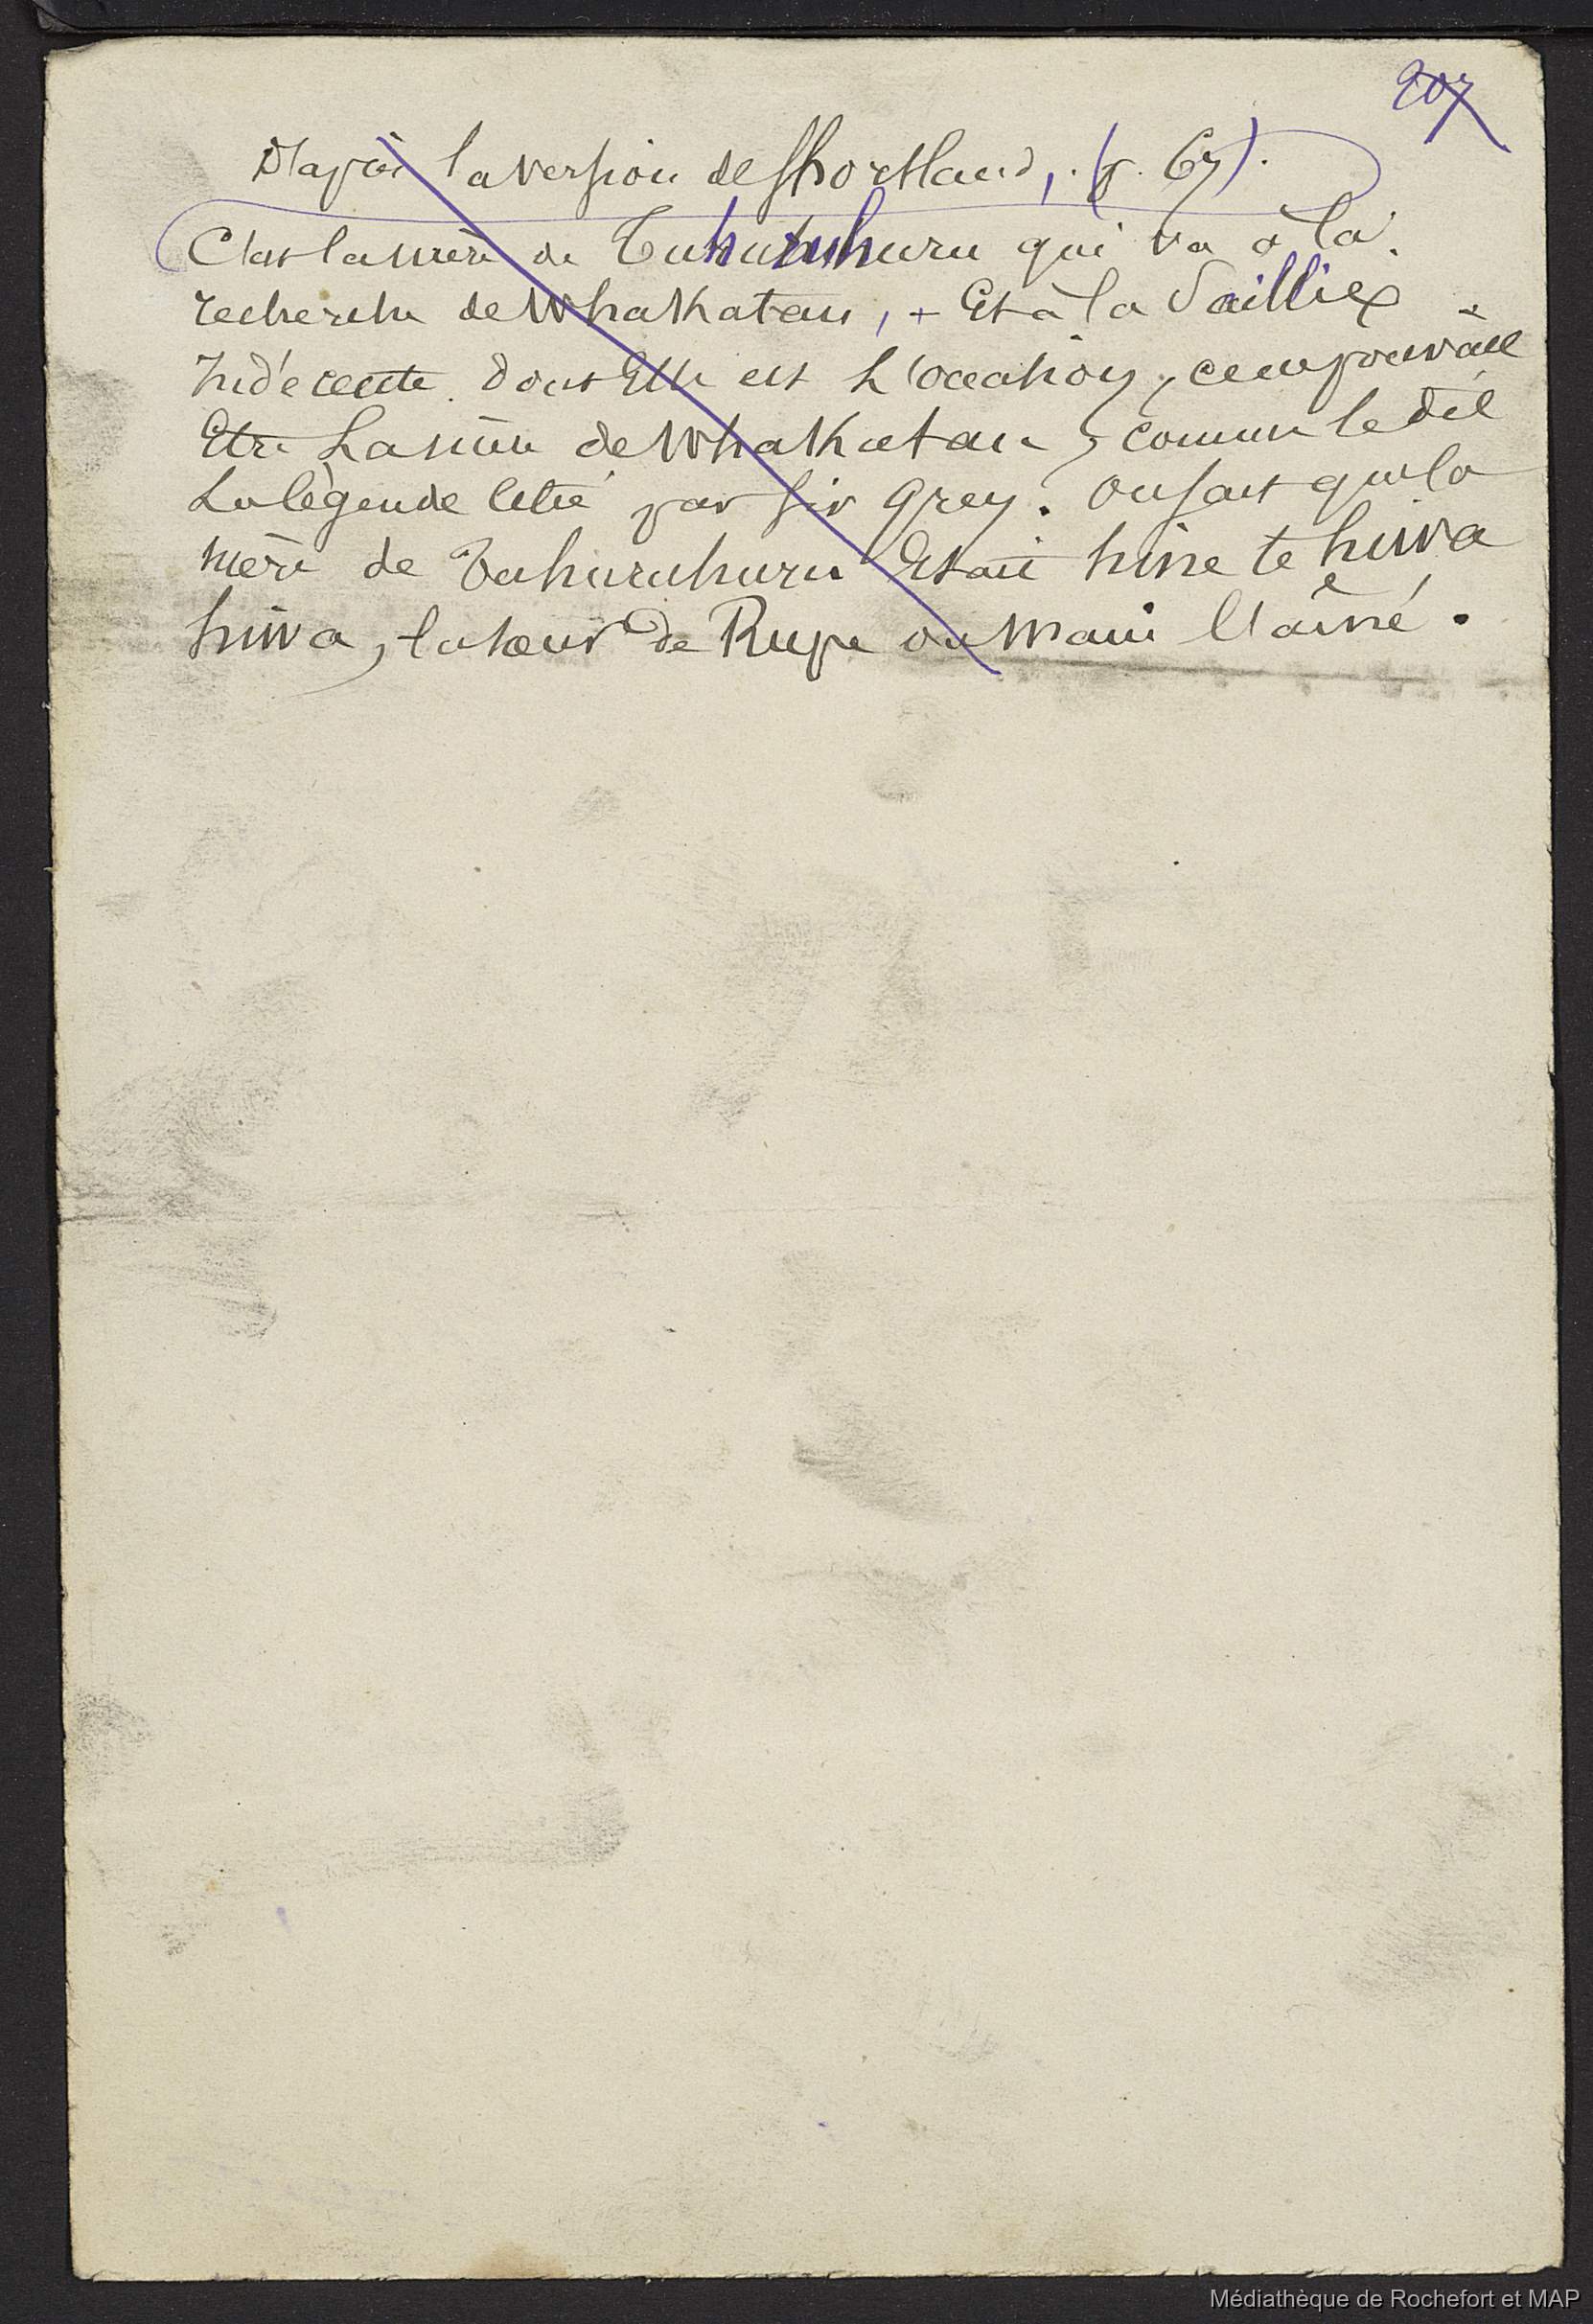 207
D'après la version de Shortland, (p. 67).
C'est la mère de Tuhuruhuru qui va à la
recherche de Whakatau, + Et à la Saillie
Indécente dont Elle est L'occasion, ce ne pouvait
Etre La mère de Whakatau, comme le dit
La légende citée par Sir Grey. On sait que la
mère de Tuhuruhuru Etait hine te hiwa
hiwa, la sœur de Rupe ou Maui l'aîné.
Médiathèque de Rochefort et MAP